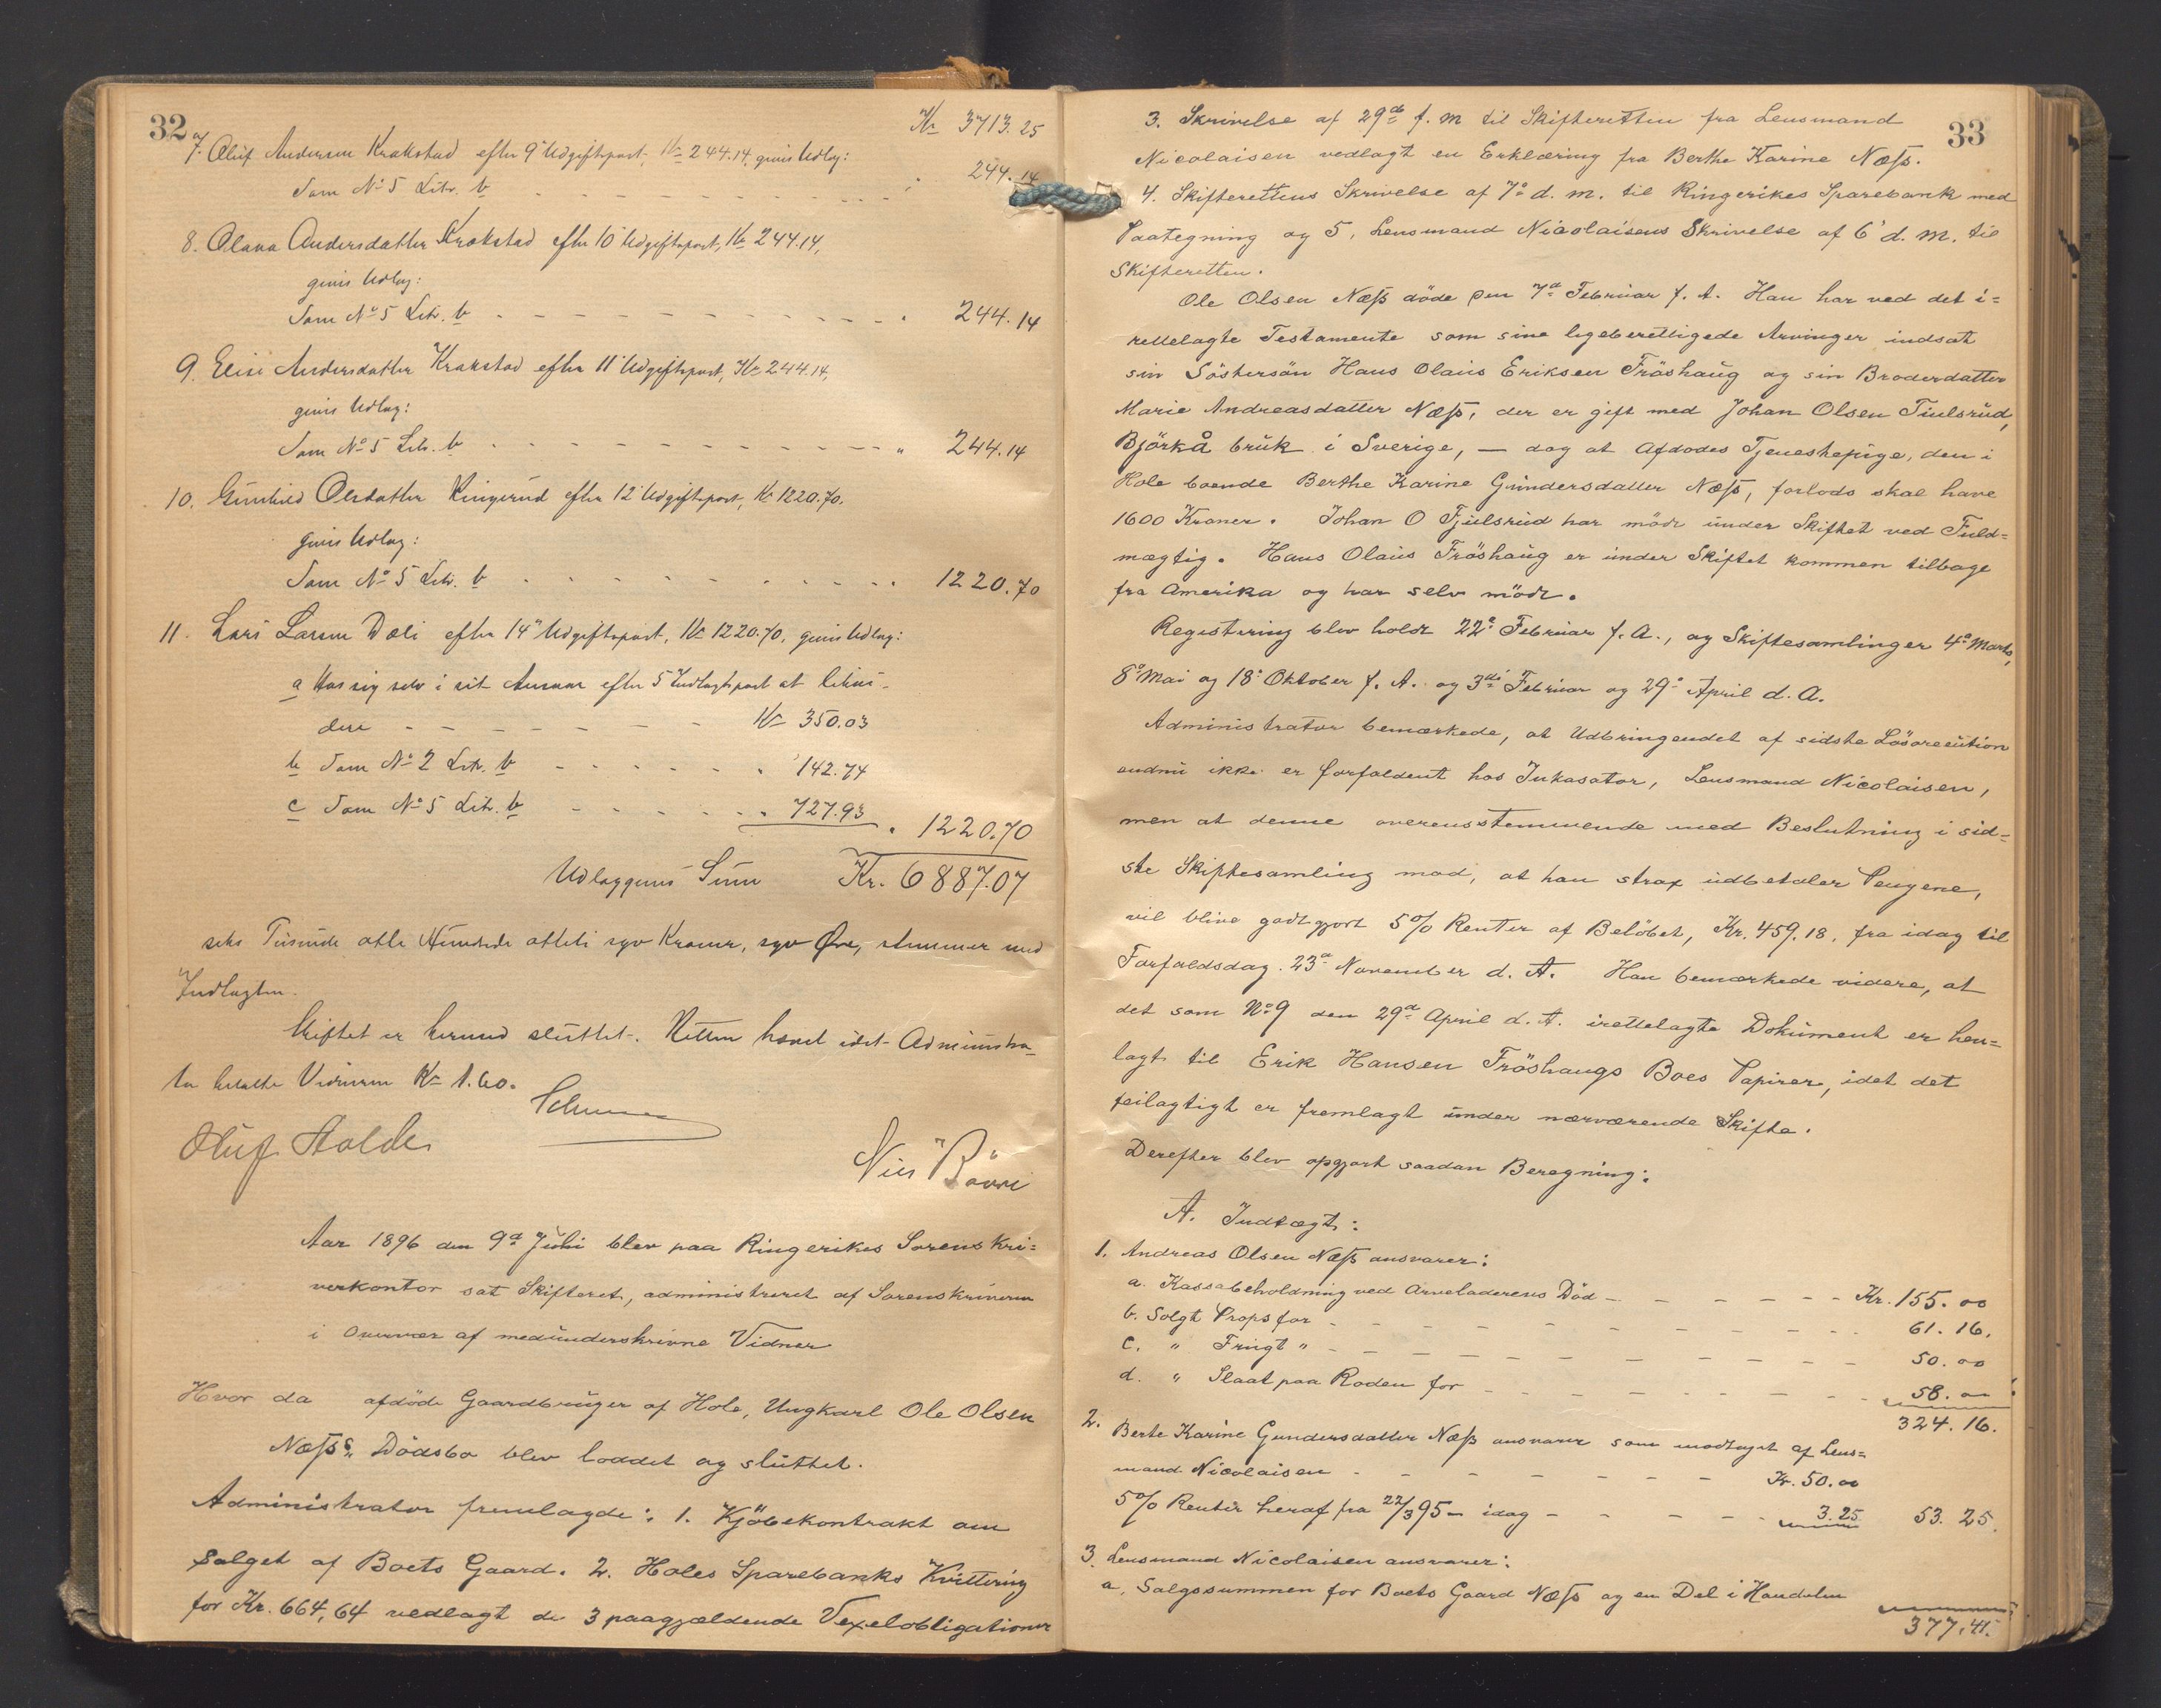 32
Kr 3713.25
7. Oluf Andersen Krakstad efter 9' Udgiftspost, Kr 244.14, gives Udlæg:
Som No 5 Litr. b - - - - - - - - " 244.14
8. Olava Andersdatter Krakstad efter 10' Udgiftspost, Kr 244.14,
gives Udlæg:
Som No 5 Litr. b - - - - - - - - " 244.14
9. Elise Andersdatter Krakstad efter 11' Udgiftspost, Kr 244.14,
gives Udlæg:
Som No 5 Litr. b - - - - - - - - " 244.14
10. Gunhild Olsdatter Ringerud efter 12' Udgiftspost, Kr 1220.70.
gives Udlæg:
Som No 5 Litr. b - - - - - - - - 1220.70
11. Lars Larsen Dæli efter 14' Udgiftspost, Kr 1220.70, gives Udlæg:
a Hos sig selv i sit Ansvar efter 5 Indtægtspost at likvi-
dere - - - - - - Kr 350.03
b Som No 2 Litr. b - - - - - " 142.74
c Som No 5 Litr. b - - - - - " 727.93 " 1220.70
Udlæggenes Sum Kr. 6887.07
seks Tusinde otte Hundrede otteti syv Kroner, syv Øre, stemmer med
Indtægten.
Skiftet er hermed sluttet. Retten hævet idet Administra-
tor betalte Vidnerne Kr 1.60.
Oluf Stalde
Nils
Aar 1896 den 9de Juli blev paa Ringerikes Sorenskri=
verkontor sat Skifteret, administreret af Sorenskriveren
i Overvær af medunderskrivne Vidner
Hvor da afdöde Gaardbruger af Hole, Ungkarl Ole Olsen
Næss's Dödsbo blev loddet og sluttet.
Administrator fremlagde: 1. Kjöbekontrakt om
Salget af Boets Gaard. 2. Holes Sparebanks Kvittering
for Kr. 664,64 vedlagt de 3 paagjældende Vexelobligationer
33
3. Skrivelse af 29de f. M til Skifteretten fra Lensmand
Nicolaisen vedlagt en Erklæring fra Berthe Karine Næss.
4. Skifterettens Skrivelse af 7de d. M. til Ringerikes Sparebank med
Paategning og 5, Lensmand Nicolaisens Skrivelse af 6' d. M. til
Skifteretten.
Ole Olsen Næss döde den 7de Februar f. A. Han har ved det i=
rettelagte Testamente som sine ligeberettigede Arvinger indsat
sin Söstersön Hans Olaus Eriksen Fröshaug og sin Broderdatter
Marie Andreasdatter Næss, der er gift med Johan Olsen Tiulsrud,
Björkå bruk i Sverige, — dog at Afdödes Tjenestepige, den i
Hole boende Berthe Karine Gundersdatter Næss, forlods skal have
1600 Kroner. Johan O Tjulsrud har mödt under Skiftet ved Fuld=
mægtig. Hans Olaus Fröshaug er under Skiftet kommen tilbage
fra Amerika og har selv mödt.
Registering blev holdt 22de Februar f. A., og Skiftesamlinger 4de Marts,
8de Mai og 18' Oktober f. A. og 3die Februar og 29' April d. A.
Administrator bemærkede, at Udbringendet af sidste Lösöreauktion
endnu ikke er forfaldent hos Inkasator, Lensmand Nicolaisen,
men at denne overensstemmende med Beslutning i sid=
ste Skiftesamling mod, at han strax udbetaler Pengene,
vil blive godtgjort 5% Renter af Belöbet, Kr. 459.18, fra idag til
Forfaldsdag 23de November d. A. Han bemærkede videre, at
det som No 9 den 29de April d. A. irettelagte Dokument er hen=
lagt til Erik Hansen Fröshaugs Boes Papirer, idet det
feilagtigt er fremlagt under nærværende Skifte.
Derefter blev opgjort saadan Beregning:
A. Indtægt:
1. Andreas Olsen Næss ansvarer:
a. Kassabeholdning ved Arveladerens Död - - - - - - Kr. 155.00
b. Solgt Props for - - - - - - - - 61.16.
c. " Frugt " - - - - - - - - 50.00
d. " Slaat paa Roden for - - - - - - - 58.00
324.16.
2. Berte Karine Gundersdatter Næss ansvarer som modtaget af Lens=
mand Nicolaisen - - - - - - - Kr. 50.00
5% Renter heraf fra 22/3 95 - idag - - - - - 3.25 53.25.
3. Lensmand Nicolaisen ansvarer:
a. Salgssummen for Boets Gaard Næss og en Del i Handelen
377.41.